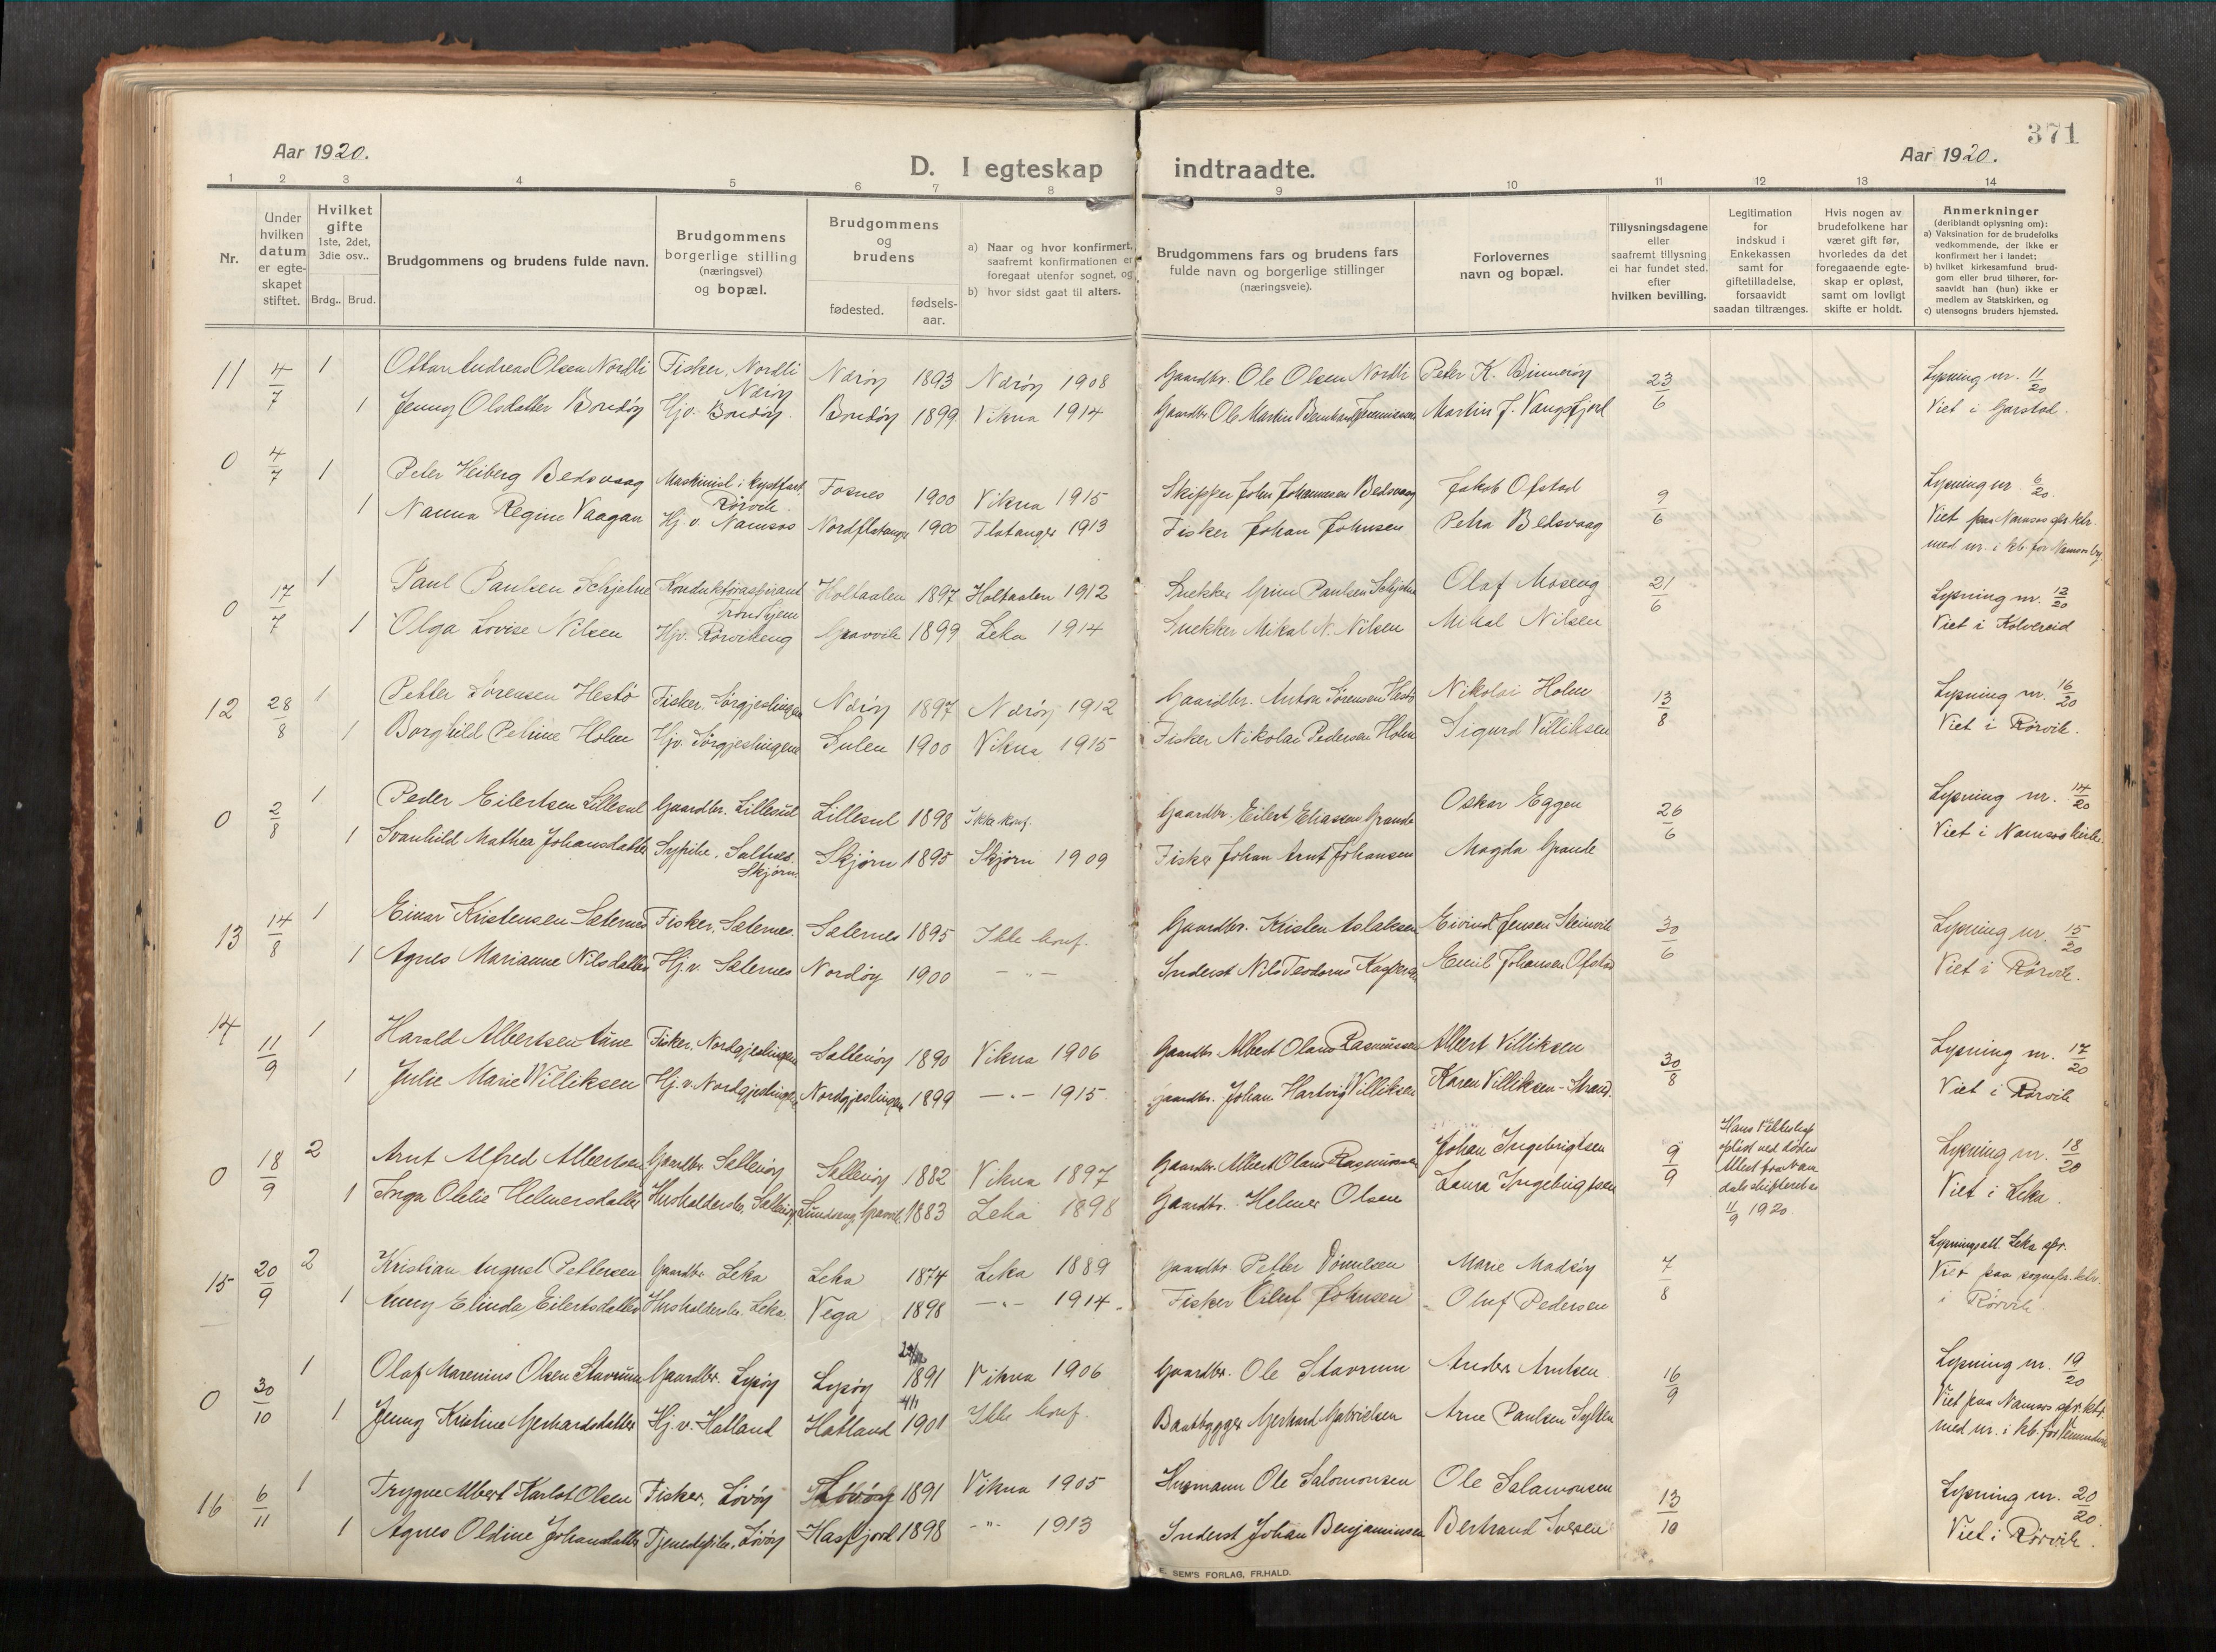 371
Aar 1920.
Aar 1920.
D. I egteskap indtraadte.
1 2 3 4 5 6 7 8 9 10 11 12 13 14
Nr.
Under hvilken datum er egteskapet stiftet.
Hvilket gifte 1ste, 2det, 3die osv..
Brdg.. Brud.
Brudgommens og brudens fulde navn.
Brudgommens borgerlige stilling (næringsvei) og bopæl.
Brudgommens og brudens
fødested.
fødsels-aar.
a) Naar og hvor konfirmert, saafremt konfirmationen er foregaat utenfor sognet, og
b) hvor sidst gaat til alters.
Brudgommens fars og brudens fars fulde navn og borgerlige stillinger (næringsveie).
Forlovernes navn og bopæl.
Tillysningsdagene eller saafremt tillysning ei har fundet sted. efter hvilken bevilling.
Legitimation for indskud i Enkekassen samt for giftetilladelse, forsaavidt saadan tiltrænges.
Hvis nogen av brudefolkene har været gift før, hvorledes da det foregaaende egteskap er opløst, samt om lovligt skifte er holdt.
Anmerkninger (deriblandt oplysning om):
a) Vaksination for de brudefolks vedkommende, der ikke er konfirmert her i landet;
b) hvilket kirkesamfund brudgom eller brud tilhører, forsaavidt han (hun) ikke er medlem av Statskirken, og
c) utensogns bruders hjemsted.
11 4/7 1 Ottar Andreas Olsen Nordli Fisker, Nordli Nærøy Nærøy 1893 Nærøy 1908 Gaardbr. Ole Olsen Nordli Peter K. Binnerøy 23/6 Lysning nr. 11/20
1 Jenny Olsdatter Bondøy Hjv. Bondøy. Bondøy 1899 Vikna 1914 Gaardbr. Ole Martin Bernhard Martin J. Vangsfjord Viet i Garstad.
0 4/7 1 Peter Heiberg Bedsvaag Maskinist i kystfart. Rörvik Fosnes 1900 Vikna 1915 Skipper John Johannesen Bedsvaag Jakob Ofstad 9/6 Lysning nr. 6/20.
1 Nanna Regine Vaagan Hj. v. Namsos Nordflatanger 1900 Flatanger 1913 Fisker Johan Johnsen Petra Bedsvaag Viet paa Namsos spr. ktr. med nr. i kb. for Namsos by
0 17/7 1 Paul Paulsen Schjelne Konduktøraspirant Trondhjem Holtaalen 1897 Holtaalen 1912 Snekker Grim Paulsen Schjelne Olaf Moseng 21/6 Lysning nr. 12/20
1 Olga Lovise Nilsen Hjv. Rørvikeng Gravvik 1899 Leka 1914 Snekker Mikal N. Nilsen Mikal Nilsen Viet i Kolvereid
12 28/8 1 Petter Sørensen Hestö Fisker, Sørgjeslingen Nærøy 1897 Nærøy 1912 Gaardbr. Anton Sørensen Hestö Nikolai Holm 13/8 Lysning nr. 16/20
1 Borghild Petrine Holm Hjv. Sørgjeslingene Sulen 1900 Vikna 1915 Fisker Nikolai Pedersen Holm Sigurd Villiksen Viet i Rörvik.
0 2/8 1 Peder Eilertsen Lillesul Gaardbr. Lillesul Lillesul 1898 Ikke konf. Gaardbr. Eilert Eliassen Grande Oskar Eggen 26/6 Lysning nr. 14/20
1 Svanhild Mathea Johansdatter Sypike. Saltnes. Skjørn. Skjørn 1895 Skjørn 1909 Fisker Johan Arnt Johansen Magda Grande Viet i Namsos kirke.
13 14/8 1 Einar Kristensen Sæternes Fisker, Sæternes. Sæternes 1895 Ikke konf. Gaardbr. Kristen Aslaksen Eivind Jensen Steinvik 30/6 Lysning nr. 15/20
1 Agnes Marianne Nilsdatter Hj. v. Sæternes Nordøy 1900 – " – Inderst Nils Teodorus Kaspersen Emil Johansen Ofstad Viet i Rörvik.
14 11/9 1 Harald Albertsen Aune Fisker, Nordgjeslingen Sallenöy 1890 Vikna 1906 Gaardbr. Albert Olaus Rasmussen Albert Villiksen 30/8 Lysning nr. 17/20
1 Julie Marie Williksen Hj. v. Nordgjeslingen Nordgjeslingen 1899 – " – 1915. Gaardbr. Johan Hartvig Villiksen Karen Villiksen - Strand. Viet i Rörvik
0 18/9 2 Arnt Alfred Albertsen Gaardbr. Sallenöy Sallenöy 1882 Vikna 1897 Gaardbr. Albert Olaus Rasmussen Johan Ingebrigtsen 9/9 Hans 1' ekteskap opløst ved døden Attest fra Namdals skifteret av 11/9 1920. Lysning nr. 18/20
1 Inga Otelie Helmersdatter Husholderske, Sallenöy Lundseng, Gravvik 1883 Leka 1898 Gaardbr. Helmer Olsen Laura Ingebrigtsen Viet i Leka.
15 20/9 2 Kristian August Pettersen Gaardbr. Leka Leka 1874 Leka 1889 Gaardbr. Petter Tönnesen Marie Madsöy 7/8 Lysningsatt. Leka spr.
1 Anny Elinda Eilertsdatter Husholderske. Leka. Vega 1898 – " – 1914. Fisker Eilert Johnsen Oluf Pedersen Viet paa sognepr. ktr. i Rörvik.
0 30/10 1 Olaf Marenius Olsen Stavrum Gaardbr. Lysöy Lysöy 1891 Vikna 1906 Gaardbr. Ole Stavrum Anders Arntsen 16/9 Lysning nr. 19/20
1 Jenny Kristine Gerhardsdatter Hj. v. Hatland Hatland 4/11 1901 Ikke konf. Baatbygger Gerhard Gabrielsen Arne Paulsen Sylten Viet paa Namsos spr. ktr. med nr. i kb. for Vemundvik
16 6/11 1 Trygve Albert Karlot Olsen Fisker, Lövöy Lövöy 1891 Vikna 1905 Husmann Ole Salomonsen Ole Salamonsen 13/10 Lysning nr. 20/20.
1 Agnes Oldine Johansdatter Tjenestepike, Lövöy Hasfjord 1898 – " – 1913 Inderst Johan Benjaminsen Bertrand Iversen Viet i Rörvik.
E. SEM'S FORLAG, FR.HALD.